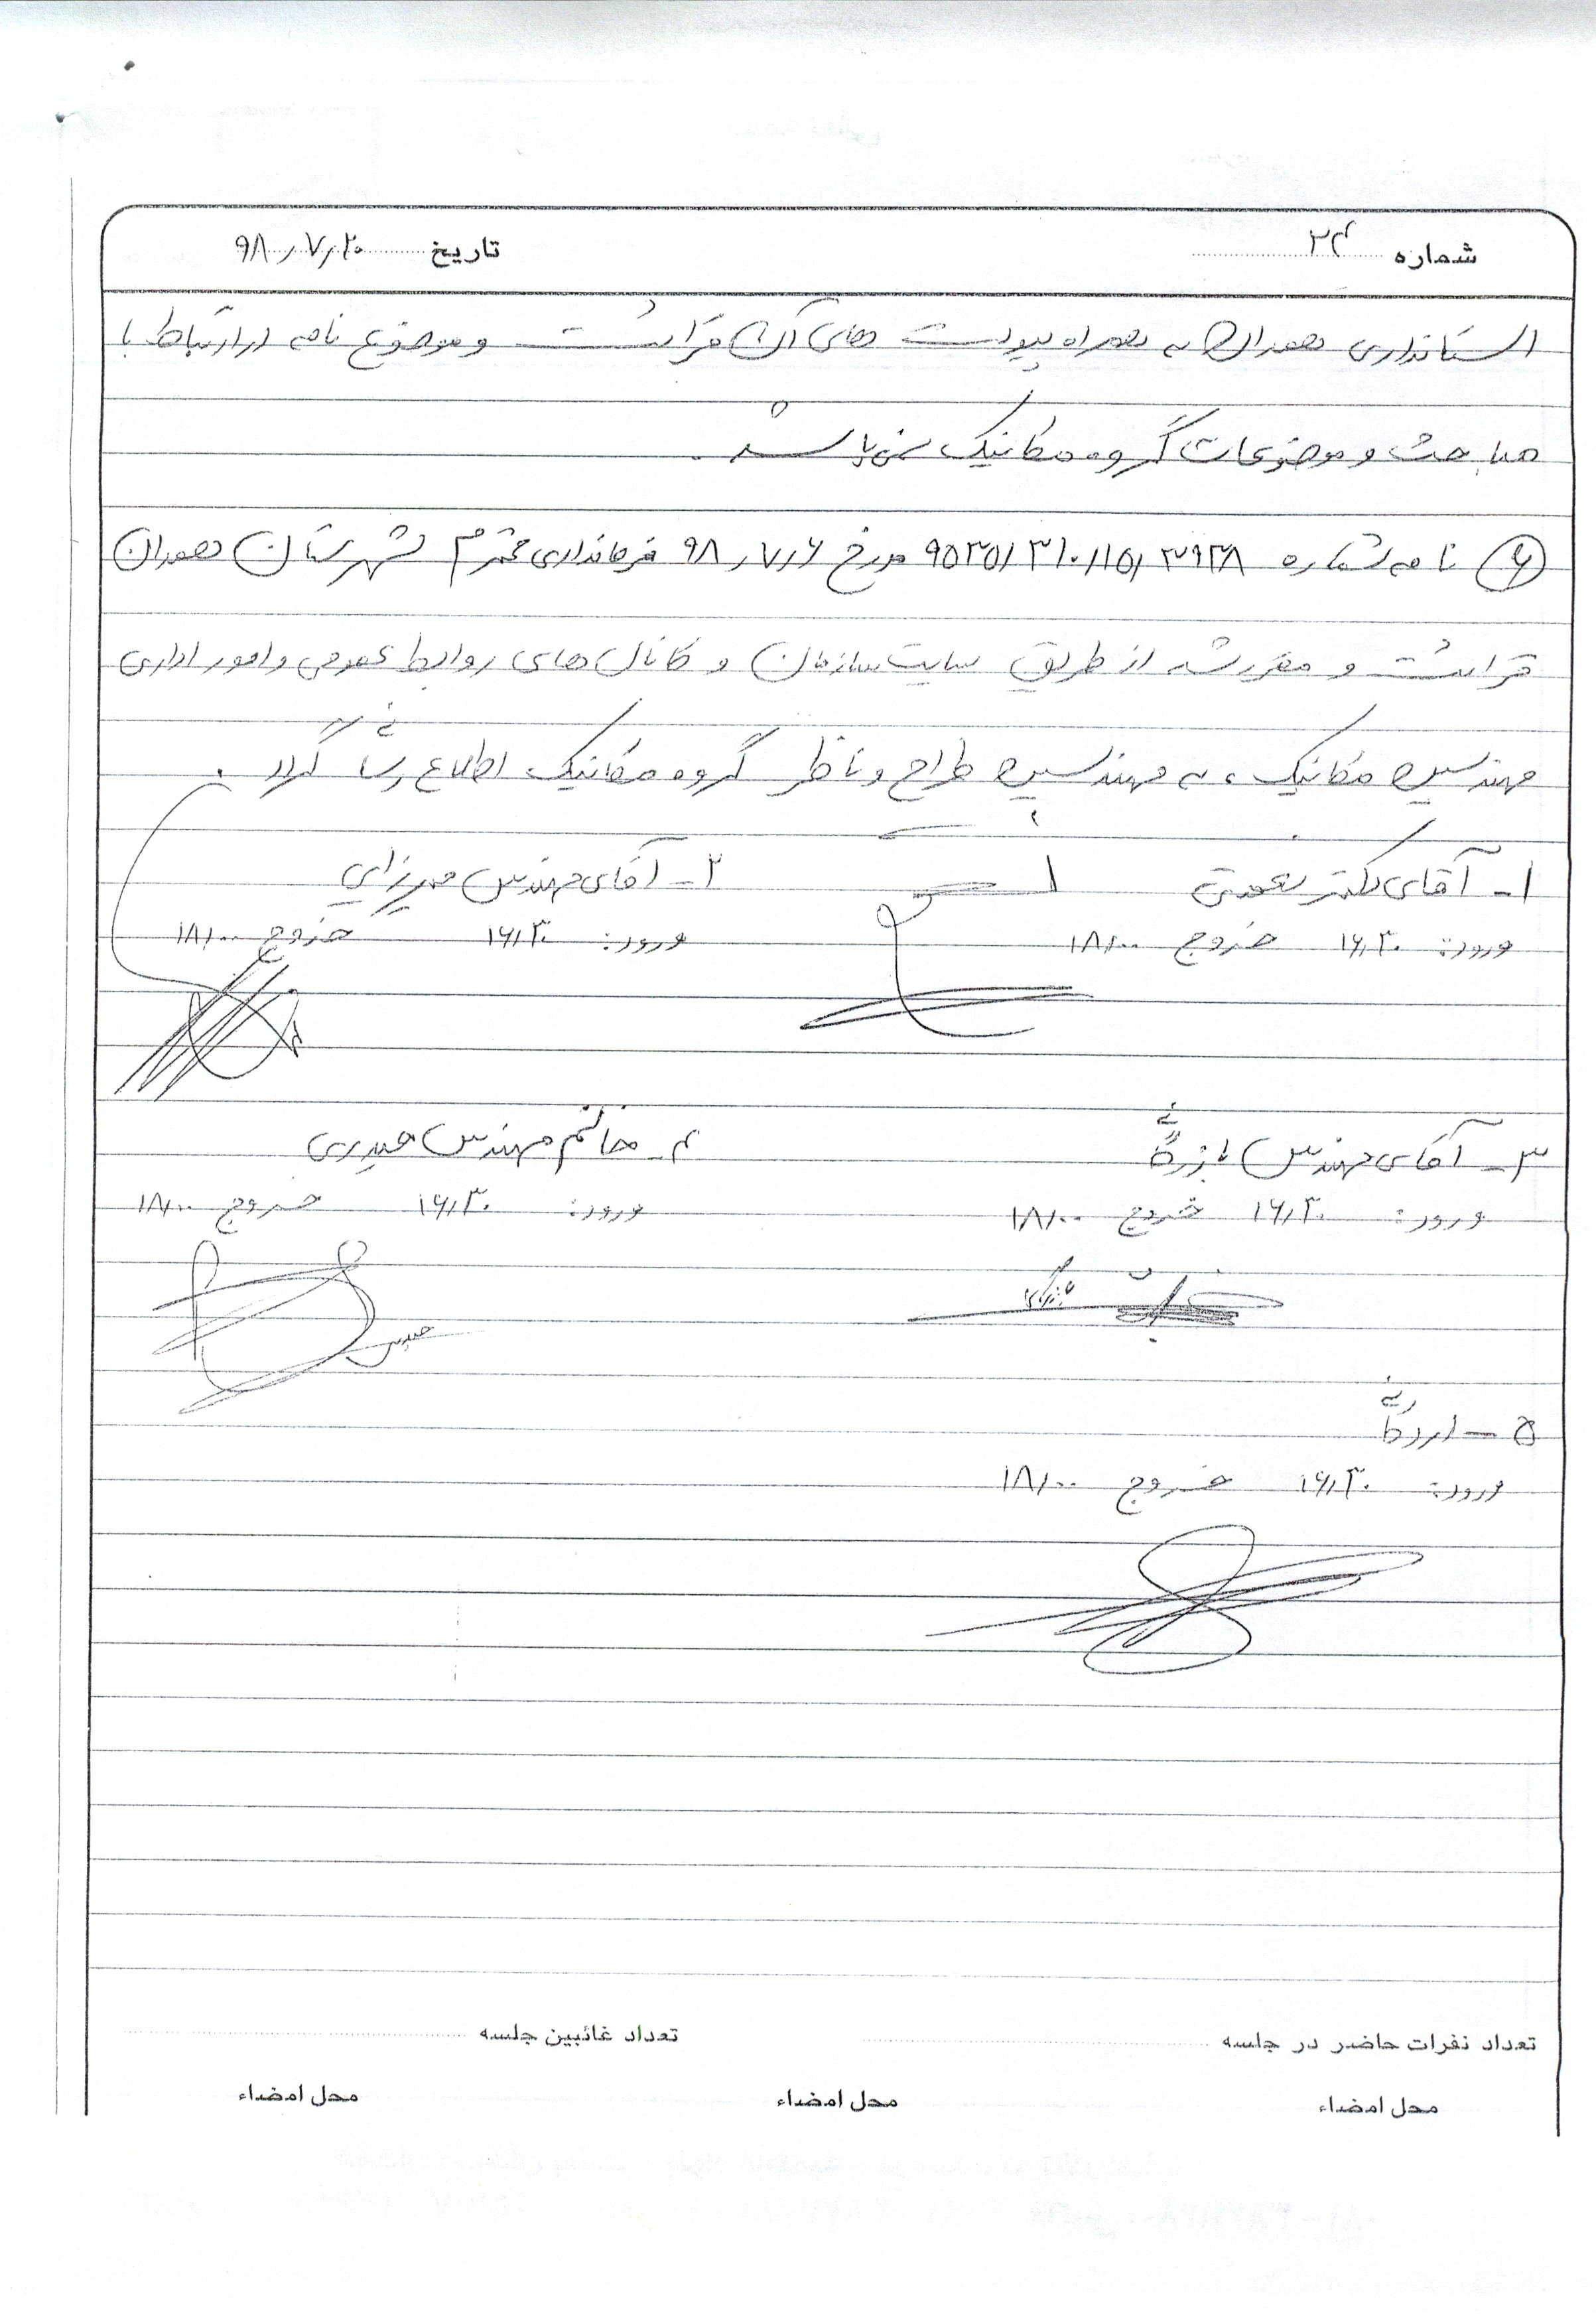 شماره ۳۴
تاریخ ۹۸/۷/۲۰
استانداری همدان به همراه پیوست های آن قرائت و موضوع نامه در ارتباط با
مباحث و موضوعات گروه مکانیک نمی باشد.
۶ نامه شماره ۹۵۳۵/۳۱۰/۱۵/۳۹۳۸ مورخ ۹۸/۷/۶ فرمانداری محترم شهرستان همدان
قرائت و مقرر شد از طریق سایت سازمان و کانال های روابط عمومی و امور اداری
مهندسین مکانیک، به مهندسین طراح و ناظر گروه مکانیک اطلاع رسانی گردد.
۱- آقای دکتر نعمتی
۲- آقای مهندس میرزایی
ورود: ۱۶/۳۰ خروج ۱۸/۰۰
ورود: ۱۶/۳۰ خروج ۱۸/۰۰
۳- آقای مهندس بازرگانی
۴- خانم مهندس حیدری
ورود: ۱۶/۳۰ خروج ۱۸/۰۰
ورود: ۱۶/۳۰ خروج ۱۸/۰۰
۵-
ورود: ۱۶/۳۰ خروج ۱۸/۰۰
تعداد نفرات حاضر در جلسه
تعداد غائبین جلسه
محل امضاء
محل امضاء
محل امضاء